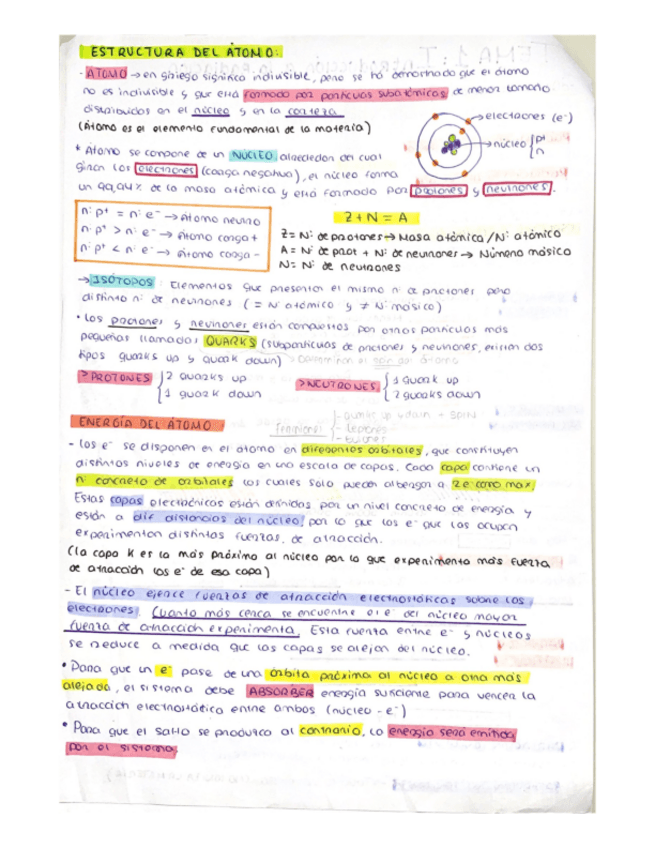 ESTRUCTURA DEL ÁTOMO:
- ÁTOMO → en griego significa indivisible, pero se ha demostrado que el átomo
no es indivisible y que está formado por partículas subatómicas de menor tamaño
distribuidos en el núcleo y en la corteza
(Átomo es el elemento fundamental de la materia)
electrones (e⁻)
núcleo { p+
n
* Átomo se compone de un NÚCLEO alrededor del cual
giran los electrones (carga negativa), el núcleo forma
un 99,94% de la masa atómica y está formado por protones y neutrones.
nº p+ = nº e⁻ → átomo neutro
nº p+ > nº e⁻ → átomo carga +
nº p+ < nº e⁻ → átomo carga -
Z + N = A
Z = Nº de protones → Masa atómica / Nº atómico
A = Nº de prot + Nº de neutrones → Número másico
N = Nº de neutrones
→ ISÓTOPOS: Elementos que presentan el mismo nº de protones pero
distinto nº de neutrones ( = Nº atómico y ≠ Nº másico)
• Los protones y neutrones están compuestos por otras partículas más
pequeñas llamadas QUARKS (subpartículas de protones y neutrones, existen dos
tipos quarks up y quark down)
> PROTONES { 2 quarks up
1 quark down
> NEUTRONES { 1 quark up
2 quarks down
ENERGÍA DEL ÁTOMO:
- Los e⁻ se disponen en el átomo en diferentes orbitales, que constituyen
distintos niveles de energía en una escala de capas. Cada capa contiene un
nº concreto de orbitales los cuales solo pueden albergar a 2e⁻ como max.
Estas capas electrónicas están definidas por un nivel concreto de energía y
están a dif distancias del núcleo, por lo que los e⁻ que las ocupan
experimentan distintas fuerzas de atracción.
(la capa K es la más próxima al núcleo por lo que experimenta más fuerza
de atracción los e⁻ de esa capa)
- El núcleo ejerce fuerzas de atracción electrostáticas sobre los
electrones. Cuanto más cerca se encuentre el e⁻ del núcleo mayor
fuerza de atracción experimenta. Esta fuerza entre e⁻ y núcleos
se reduce a medida que las capas se alejan del núcleo.
• Para que un e⁻ pase de una órbita próxima al núcleo a otra más
alejada, el sistema debe ABSORBER energía suficiente para vencer la
atracción electrostática entre ambos (núcleo - e⁻)
• Para que el salto se produzca al contrario, la energía será emitida
por el sistema.